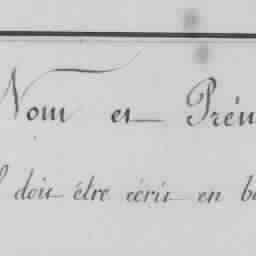 Nom et Prén
doit être écrit en b